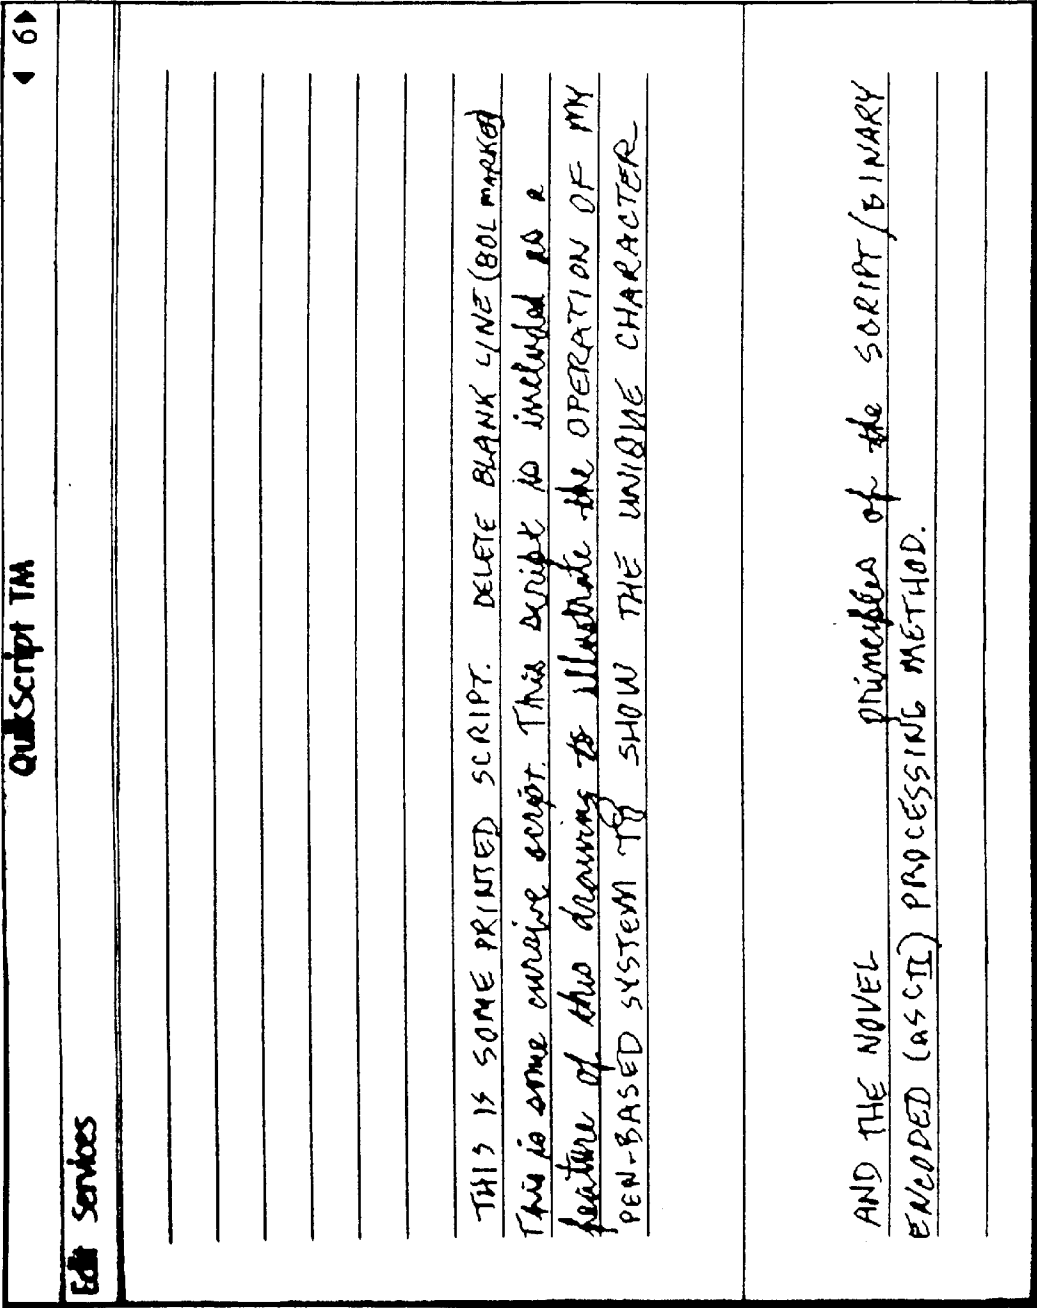 QuikScript TM
◀ 6 ▶
Edit Services
THIS IS SOME PRINTED SCRIPT. DELETE BLANK LINE (BOL MARKED)
This is some cursive script. This script is included as a
feature of this drawing to illustrate the OPERATION OF MY
PEN-BASED SYSTEM TO SHOW THE UNIQUE CHARACTER
AND THE NOVEL principles of the SCRIPT/BINARY
ENCODED (ASCII) PROCESSING METHOD.